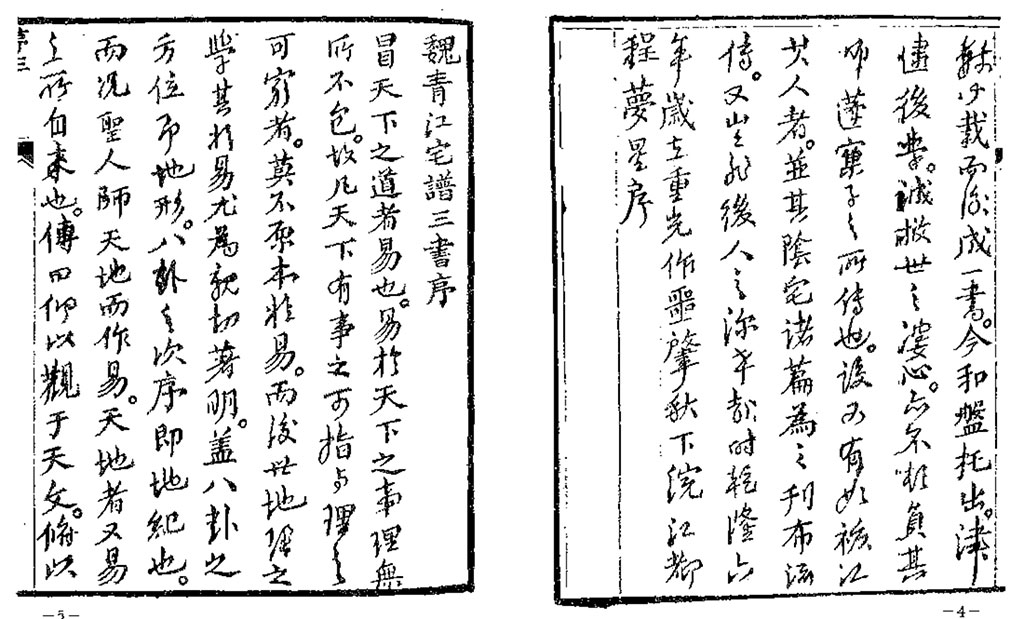 數載而後成一書。今和盤托出。津津
儘後學。誠救世之婆心。亦不負其
師蓮窠子之所傳也。設更有如
其人者。並其陰宅諸篇為之刊布流
傳。又豈非後人之深幸哉時乾隆六
年歲在重光作噩肇秋下浣江都
程夢星序
魏青江宅譜三書序
冒天下之道者易也。易於天下之事理無
所不包。故凡天下有事之可指與理之
可窮者。莫不原本於易。而後世地理之
學其於易尤為親切著明。蓋八卦之
方位即地形。八卦之次序即地紀也。
而況聖人師天地而作易。天地者又易
之所自來也。傳曰仰以觀于天文。俯以
序三
—5—
—4—